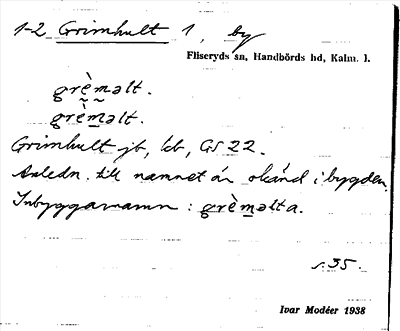 1-2 Grimhult 1, by
Fliseryds sn, Handbörds hd, Kalm. l.
grèm̰əlt.
grèməlt.
Grimhult jb, kb, GS 22.
Anledn. till namnet är okänd i bygden.
Inbyggarnamn: grèməlta.
s. 35.
Ivar Modéer 1938